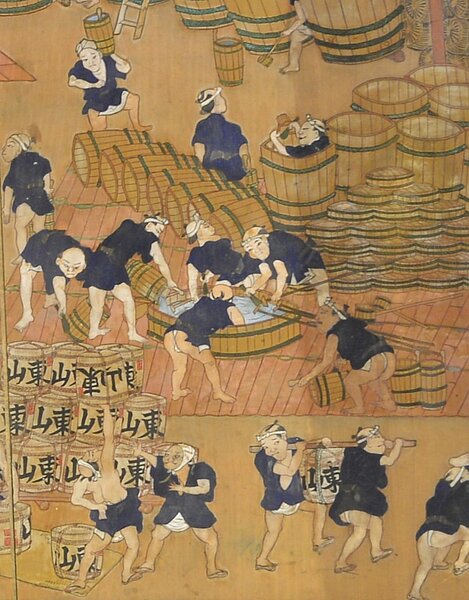 東山
東山
東山
東山
東山
東山
東山
東山